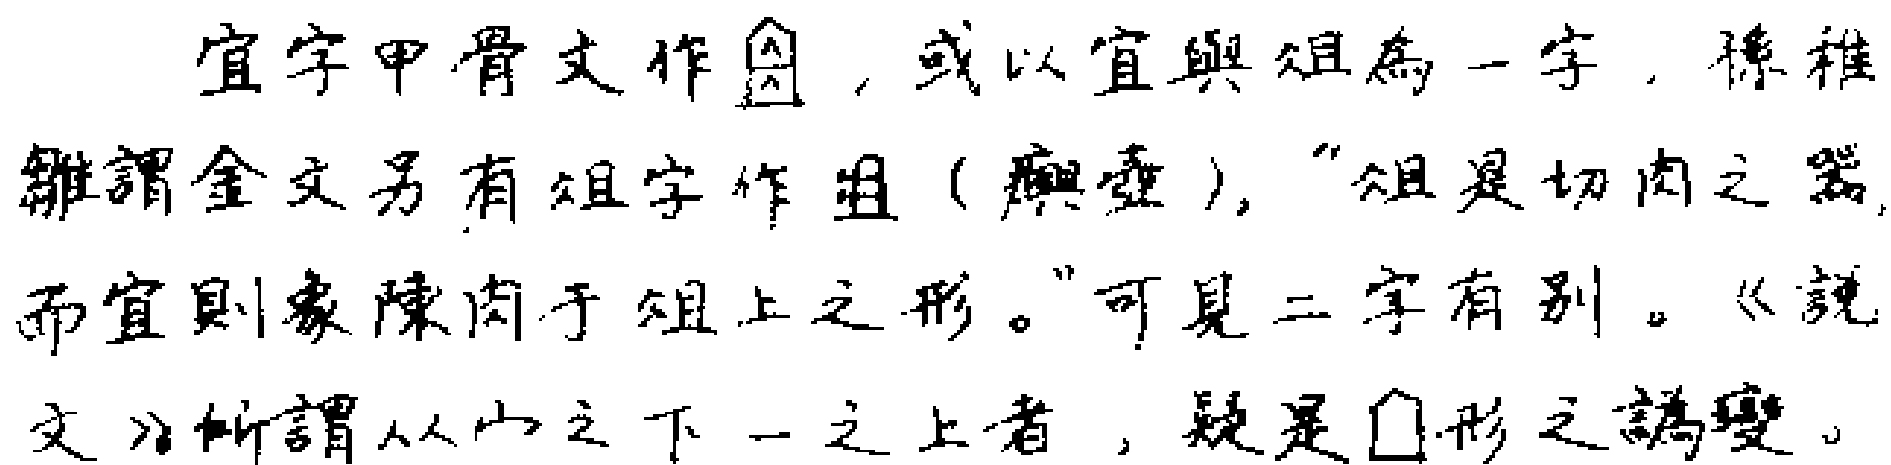 宜字甲骨文作，或以宜與俎為一字．孫稚
雛謂金文另有俎字作（𤼈壺）。“俎是切肉之器，
而宜則象陳肉于俎上之形。”可見二字有別。《說
文》所謂从宀之下一之上者，疑是形之譌變。